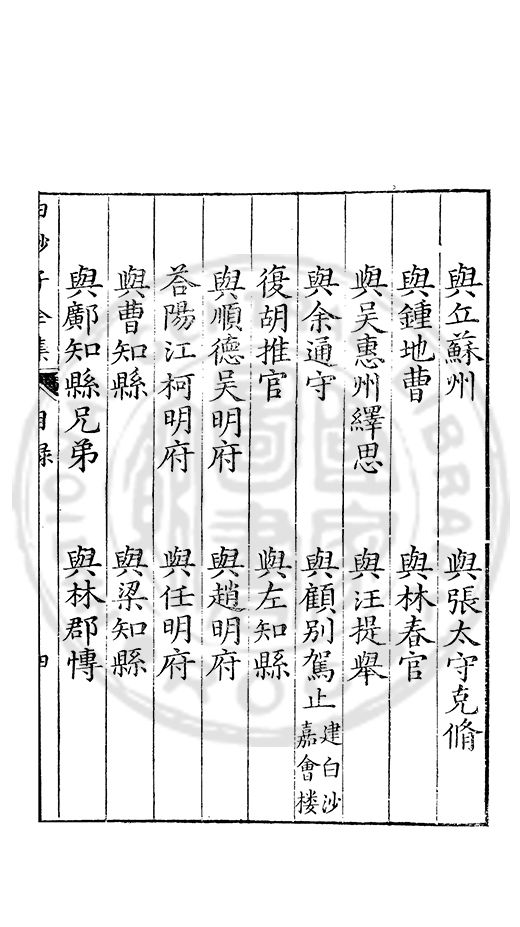 與丘蘇州　與張太守克脩
與鍾地曹　與林春官
與吴惠州繹思　與汪提舉
與余通守　與顧别駕止建白沙嘉會楼
復胡推官　與左知縣
與順德吴明府　與趙明府
荅陽江柯明府　與任明府
與曹知縣　與梁知縣
與鄺知縣兄弟　與林郡博
白沙子全集　目録　四